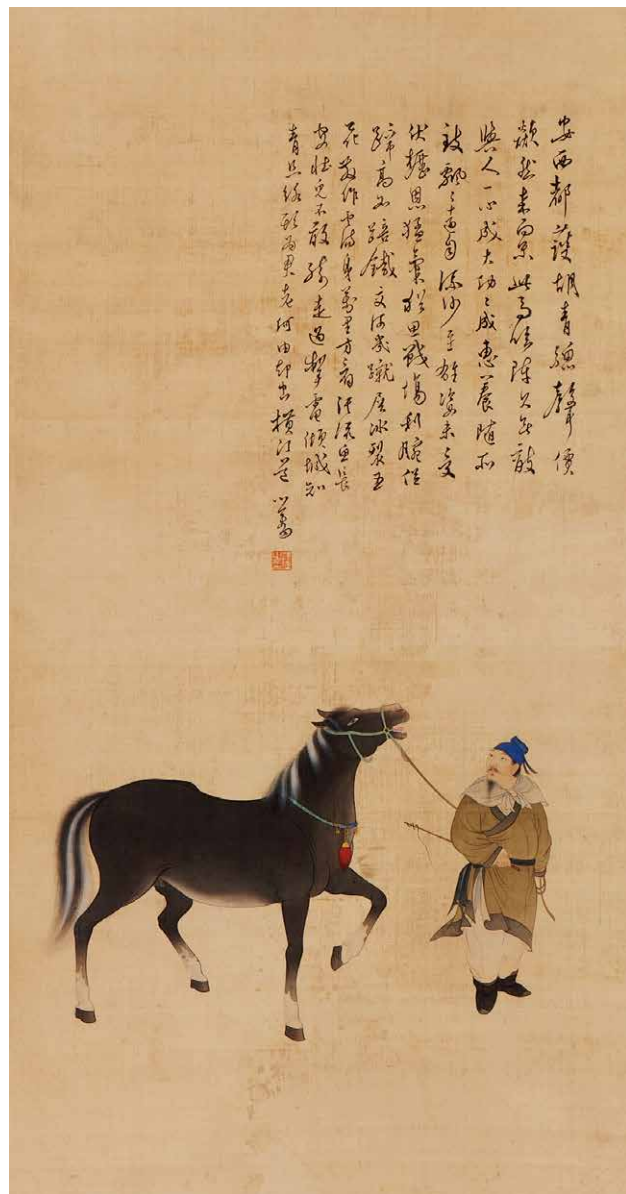 安西都護胡青驄聲價
欻然來向東此馬臨陣久無敵
與人一心成大功々成惠養隨所
致飄々遠自流沙至雄姿未受
伏櫪恩猛氣猶思戰場利腕促
蹄高如踣鐵交河幾蹴層冰裂五
花散作雲滿身萬里方看汗流血長
安壯兒不敢騎走過掣電傾城知
青絲絡頭為君老何由却出橫門道 心畬